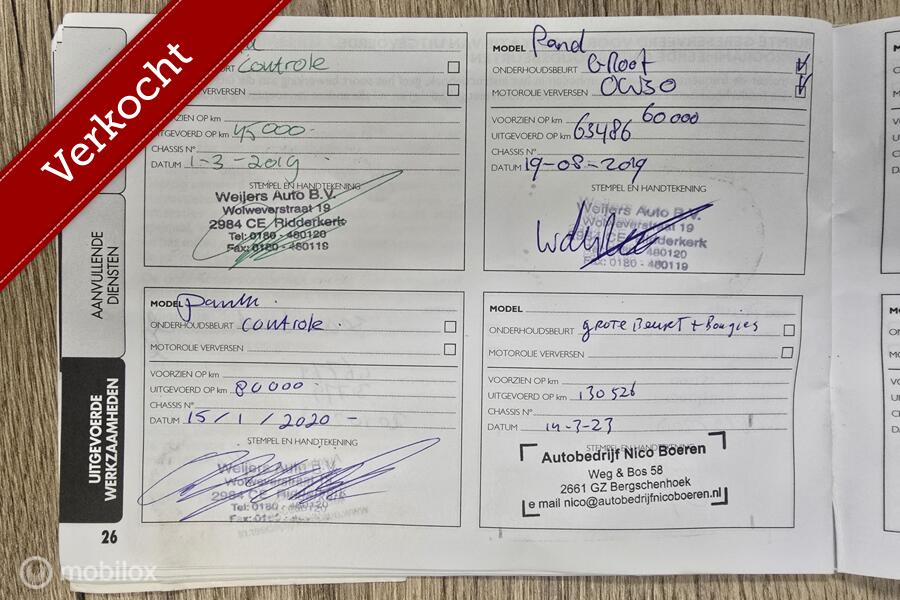 Verkocht
Controle
VERVERSEN
UITGEVOERD OP km 45000-
CHASSIS N°
DATUM 1-3-2019
STEMPEL EN HANDTEKENING
Weijers Auto B.V.
Wolweverstraat 19
2984 CE Ridderkerk
Tel: 0180 - 480120
Fax: 0180 - 480119
MODEL Pand
ONDERHOUDSBEURT Groot
MOTOROLIE VERVERSEN OW30
VOORZIEN OP km 60000
UITGEVOERD OP km 63486
CHASSIS N°
DATUM 19-08-2019
STEMPEL EN HANDTEKENING
Weijers Auto B.V.
Wolweverstraat 19
2984 CE Ridderkerk
Tel: 0180 - 480120
Fax: 0180 - 480119
AANVULLENDE
DIENSTEN
MODEL
ONDERHOUDSBEURT Controle
MOTOROLIE VERVERSEN
VOORZIEN OP km
UITGEVOERD OP km 80000
CHASSIS N°
DATUM 15/1/2020 -
STEMPEL EN HANDTEKENING
Weijers Auto B.V.
Wolweverstraat 19
2984 CE Ridderkerk
Tel: 0180 - 480120
Fax: 0180 - 480119
MODEL
ONDERHOUDSBEURT grote Beurt + Bougies
MOTOROLIE VERVERSEN
VOORZIEN OP km
UITGEVOERD OP km 130526
CHASSIS N°
DATUM 14-3-23
STEMPEL EN HANDTEKENING
Autobedrijf Nico Boeren
Weg & Bos 58
2661 GZ Bergschenhoek
e mail nico@autobedrijfnicoboeren.nl
UITGEVOERDE
WERKZAAMHEDEN
26
mobilox